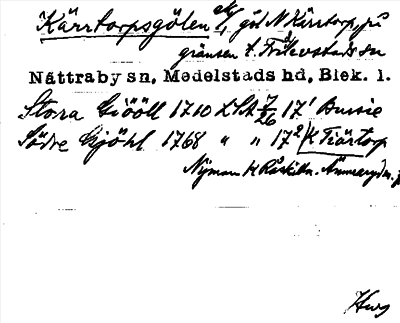 Kärrtorpsgölen gd N Kärrtorp, på
gränsen t. Fridlevstads sn
Nättraby sn, Medelstads hd, Blek. l.
Stora Giööll 1710 LSA 7/26 17¹ Bussie
Södre Gjöhl 1768 " " 17² K Tiärtorp
Nyman
Hwg